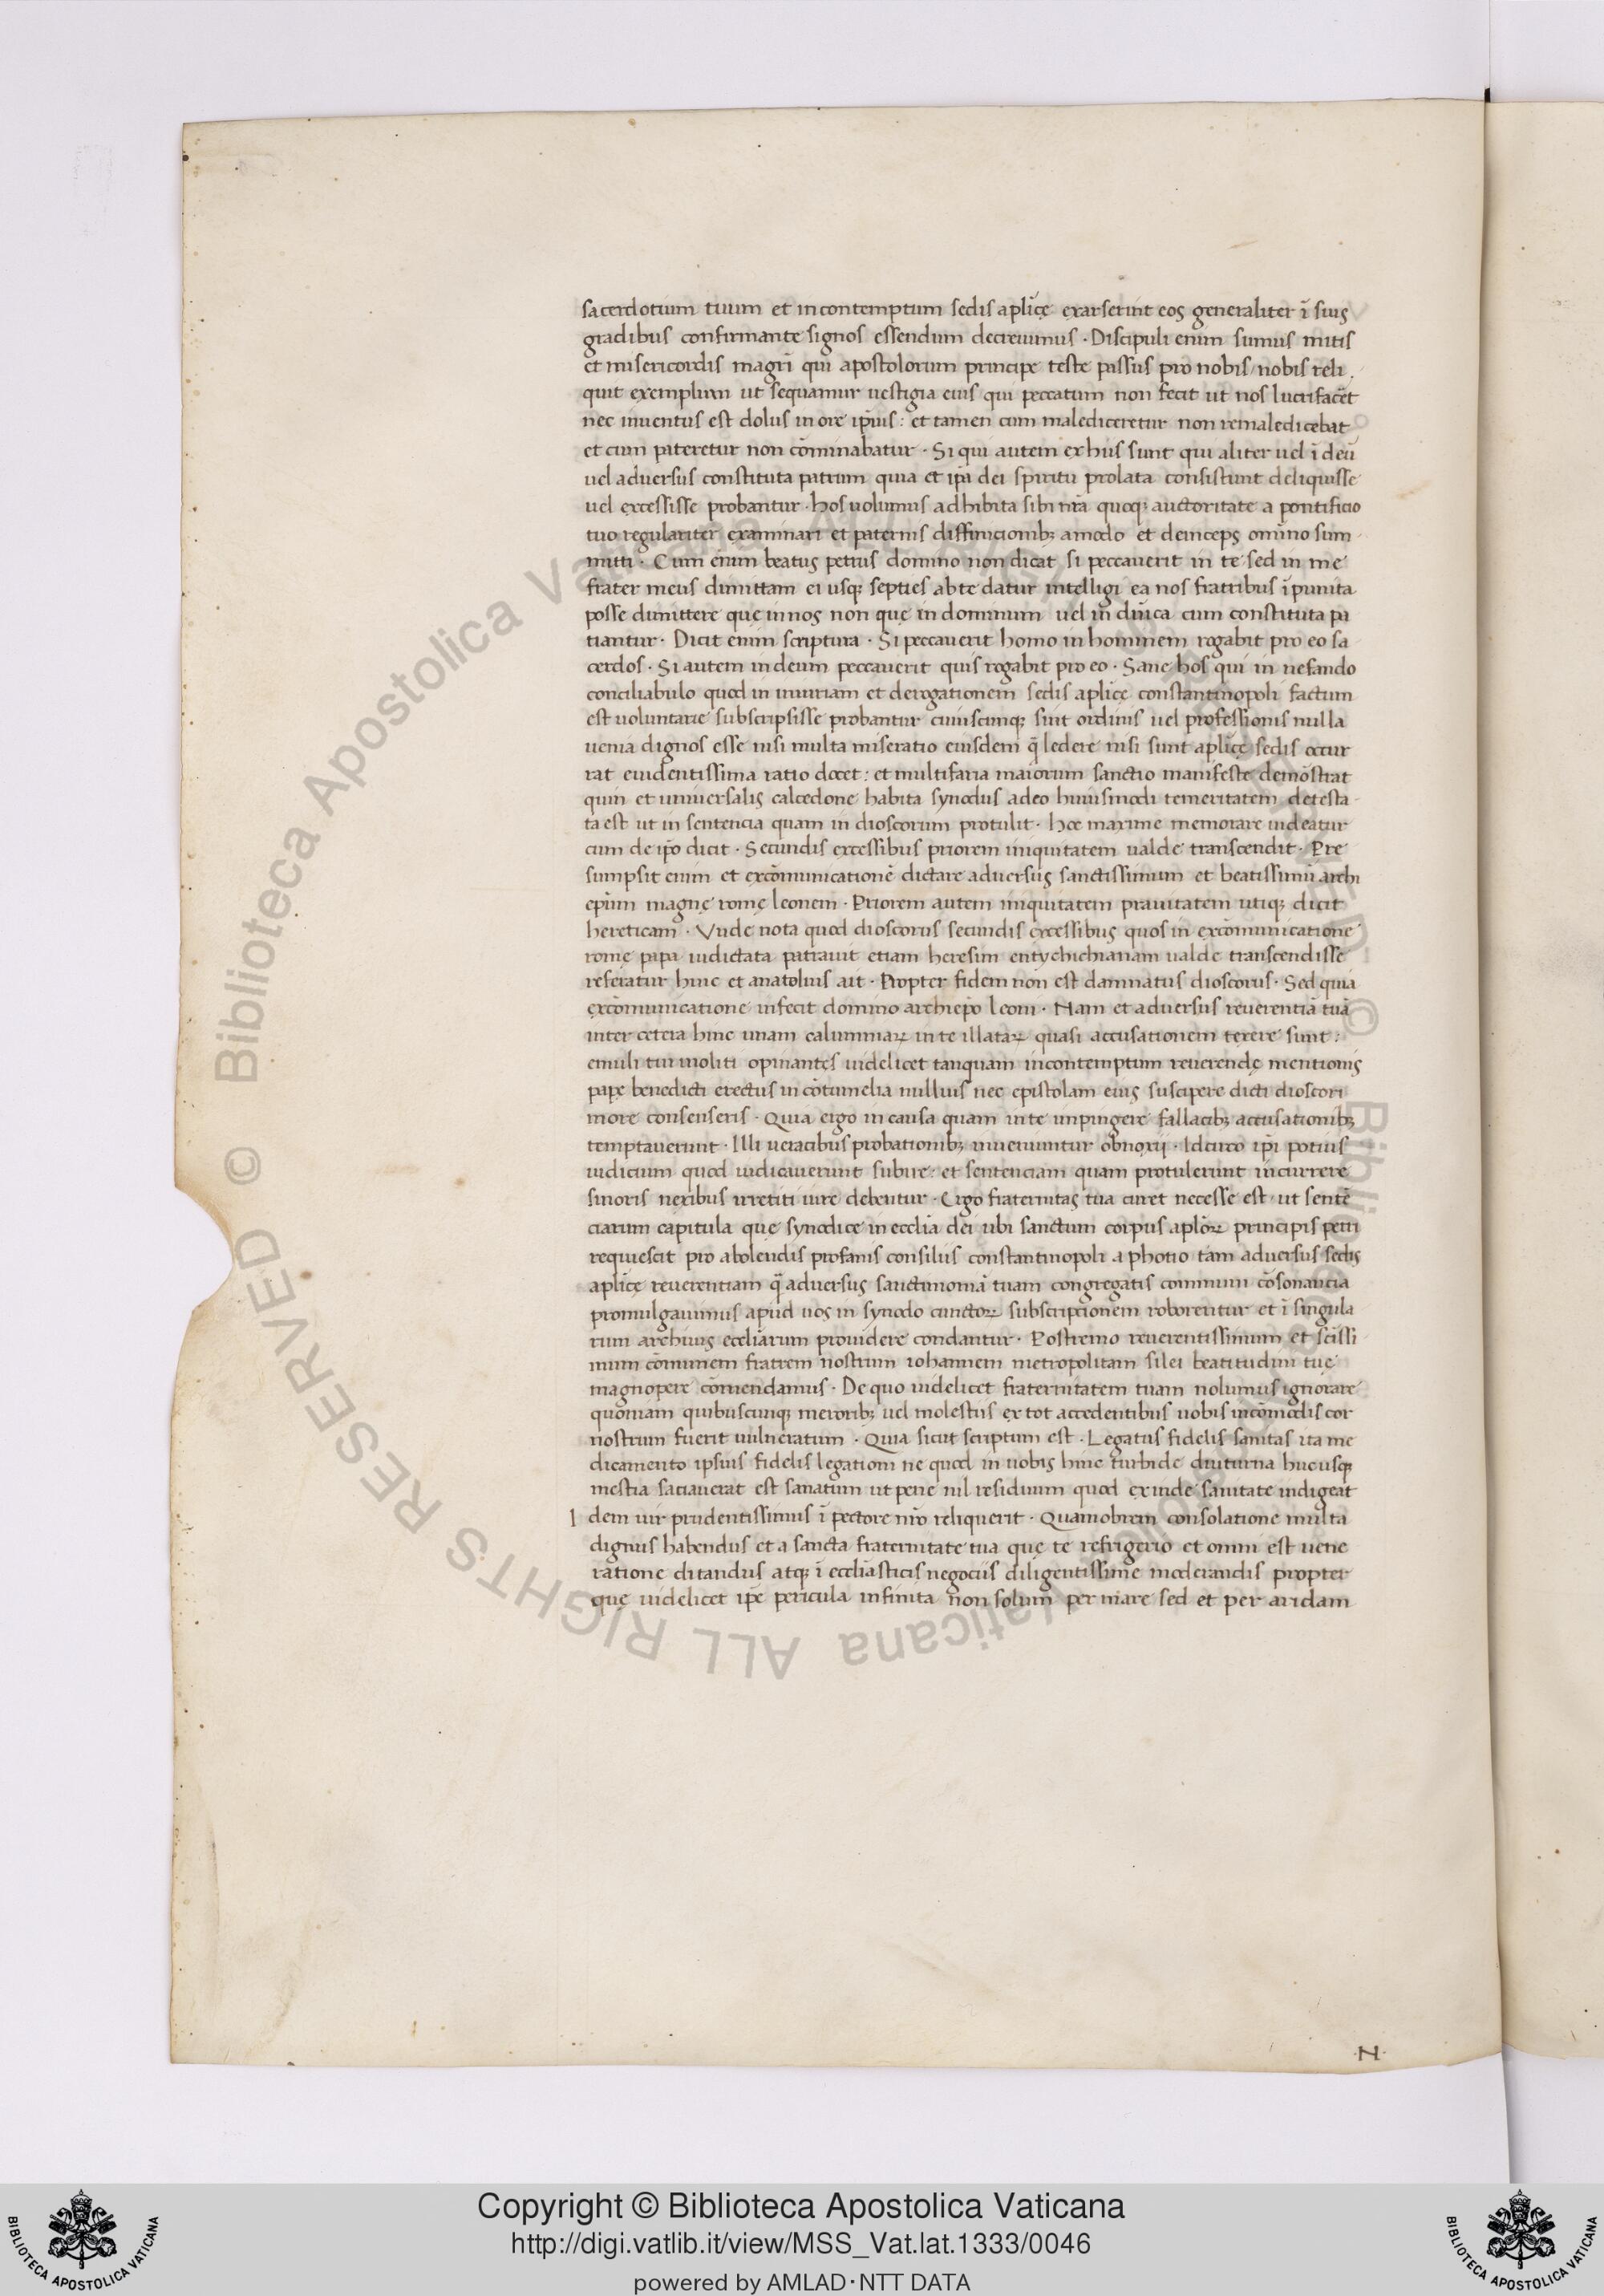 sacerdotium tuum et in contemptum sedis aplicę exarserint eos generaliter ī suis
gradibus confirmante signos essendum decreuimus · Discipuli enim sumus mitis
et misericordis magrī qui apostolorum principe teste passus pro nobis nobis reli
quit exemplum ut sequamur uestigia eius qui peccatum non fecit ut nos lucrifacēt
nec inuentus est dolus in ore ip̄ius : et tamen cum malediceretur non remaledicebat
et cum pateretur non cōminabatur · Si qui autem ex his sunt qui aliter uel ī deū
uel aduersus constituta patrum quia et ip̄a dei spiritu prolata consistunt deliquisse
uel excessisse probantur · hos uolumus adhibita sibi nr̄a quoq; auctoritate a pontificio
tuo regulariter examinari et paternis diffinicionib; amodo et deinceps omīno sum
mitti · Cum enim beatus petrus domino non dicat si peccauerit in te sed in me
frater meus dimittam ei usq; septies ab te datur intelligi ea nos fratribus īpunita
posse dimittere quę in nos non quę in dominum uel in dīuica cum constituta pa
tiantur · Dicit enim scriptura · Si peccauerit homo in hominem rogabit pro eo sa
cerdos · Si autem in deum peccauerit quis rogabit pro eo · Sane hos qui in nefando
conciliabulo quod in iniuriam et derogationem sedis aplicę constantinopoli factum
est uoluntarie subscripsisse probantur cuiuscunq; sint ordinis uel professionis nulla
uenia dignos esse nisi multa miseratio eiusdem q̄ ledere nisi sunt aplicę sedis occur
rat euidentissima ratio docet : et multifaria maiorum sanctio manifeste demōstrat
quin et uniuersalis calcedone habita synodus adeo huiusmodi temeritatem detesta
ta est ut in sentencia quam in dioscorum protulit · hoc maxime memorare uideatur
cum de ip̄o dicit · Secundis excessibus priorem iniquitatem ualde transcendit · Pre
sumpsit enim et excōmunicationē dictare aduersus sanctissimum et beatissimū archi
ep̄um magnę romę leonem · Priorem autem iniquitatem prauitatem utiq; dicit
hereticam · Vnde nota quod dioscorus secundis excessibus quos in excōmunicatione
rome papa indictata patrauit etiam heresim entychichianam ualde transcendisse
referatur hinc et anatolius ait · Propter fidem non est damnatus dioscorus · Sed quia
excōmunicatione infecit domino archiepō leoni · Nam et aduersus reuerentiā tuā
inter cetera hinc unam calumniaꝝ in te illataꝝ quasi accusationem texere sunt :
emuli tui moliti opinantes uidelicet tanquam in contemptum reuerendę mentionis
papę benedicti erectus in cōtumelia nullius nec epistolam eius suscipere dicti dioscori
more consenseris · Quia ergo in causa quam in te inpingere fallacib; accusationib;
temptauerunt · Illi ueracibus probationib; inueniuntur obnoxij · Idcirco ip̄i potius
iudicium quod iudicauerunt subire : et sentenciam quam protulerunt incurrere
sinoris nexibus irretiti iure debentur · Ergo fraternitas tua curet necesse est ut sentē
ciarum capitula quę synodice in eccl̄ia dei ubi sanctum corpus aplōꝝ principis petri
requiescit pro abolendis profanis consiliis constantinopoli a photio tam aduersus sedis
aplicę reuerentiam q̄ aduersus sanctimoniā tuam congregatis communi cōsonancia
promulgauimus apud uos in synodo cunctoꝝ subscriptionem roborentur et ī singula
rum archiuis eccl̄iarum prouidere condantur · Postremo reuerentissimum et sc̄issi
mum cōmunem fratrem nostrum iohannem metropolitam silei beatitudini tuę
magnopere cōmendamus · De quo uidelicet fraternitatem tuam nolumus ignorare
quoniam quibuscunq; meroribꝫ uel molestiis ex tot accedentibus uobis incōmodis cor
nostrum fuerit uulneratum · Quia sicut scriptum est · Legatus fidelis sanitas ita me
dicamento ipsius fidelis legationi ne quod in uobis hinc turbide diuturna hucusq;
mestia saciauerat est sanatum ut pene nil residuum quod exinde sanitate indigeat
I dem uir prudentissimus ī pectore nr̄o reliquerit · Quamobrem consolatione multa
dignus habendus et a sancta fraternitate tua quę te refrigerio et omni est uene
ratione ditandus atq; ī eccl̄iasticis negociis diligentissime moderandis propter
quę uidelicet ip̄e pericula infinita non solum per mare sed et per aridam
N
© Biblioteca Apostolica Vaticana ALL RIGHTS RESERVED
Copyright © Biblioteca Apostolica Vaticana
http://digi.vatlib.it/view/MSS_Vat.lat.1333/0046
powered by AMLAD·NTT DATA
BIBLIOTECA APOSTOLICA VATICANA
BIBLIOTECA APOSTOLICA VATICANA